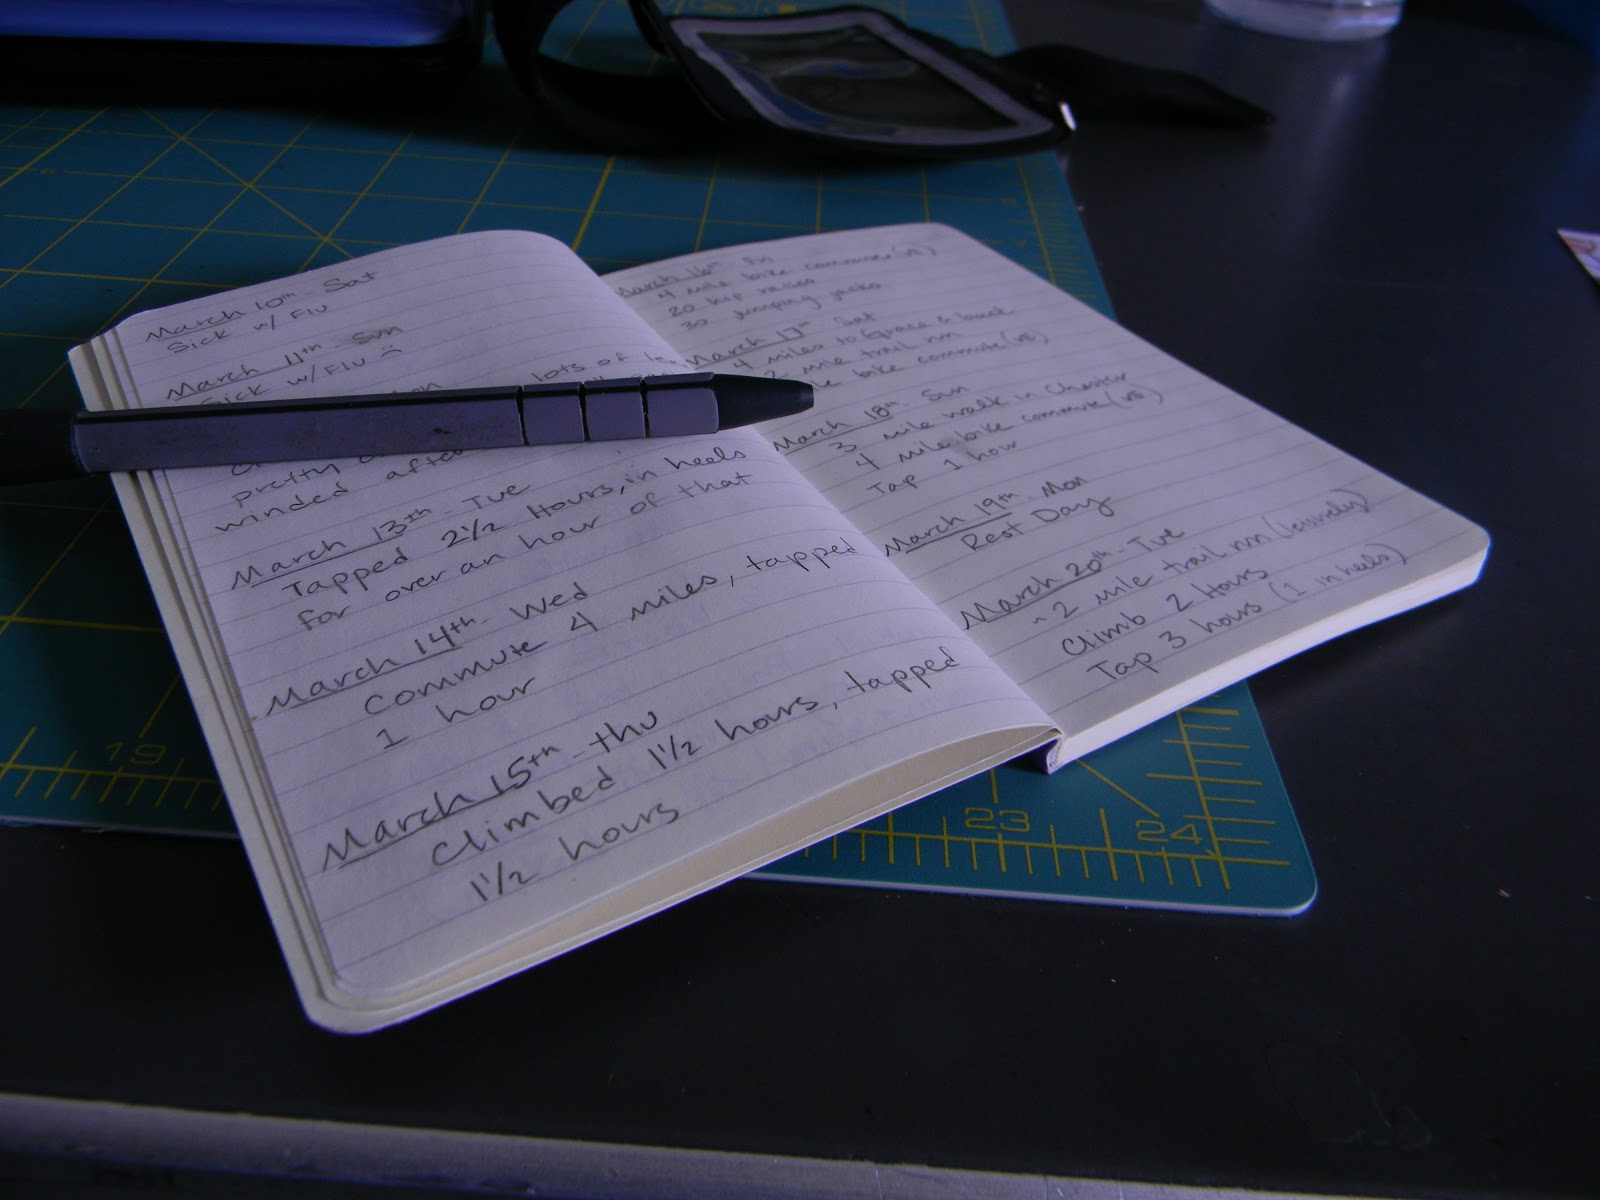 March 10th Sat
Sick w/ Flu
March 11th Sun
Sick w/ Flu ☹
lots of
pretty
winded after
March 13th - Tue
Tapped 2 1/2 Hours, in heels
for over an hour of that
March 14th - Wed
Commute 4 miles, tapped
1 hour
March 15th - Thu
Climbed 1 1/2 hours, tapped
1 1/2 hours
March 16th Fri
4 mile bike commute
20 hip raises
30 jumping jacks
March 17th Sat
4 miles to Grace & back
2 mile trail run
bike commute
March 18th - Sun
3 mile walk in Chester
4 mile bike commute
Tap 1 hour
March 19th - Mon
Rest Day
March 20th - Tue
~ 2 mile trail run (leisurely)
Climb 2 Hours
Tap 3 hours (1 in heels)
19
23
24